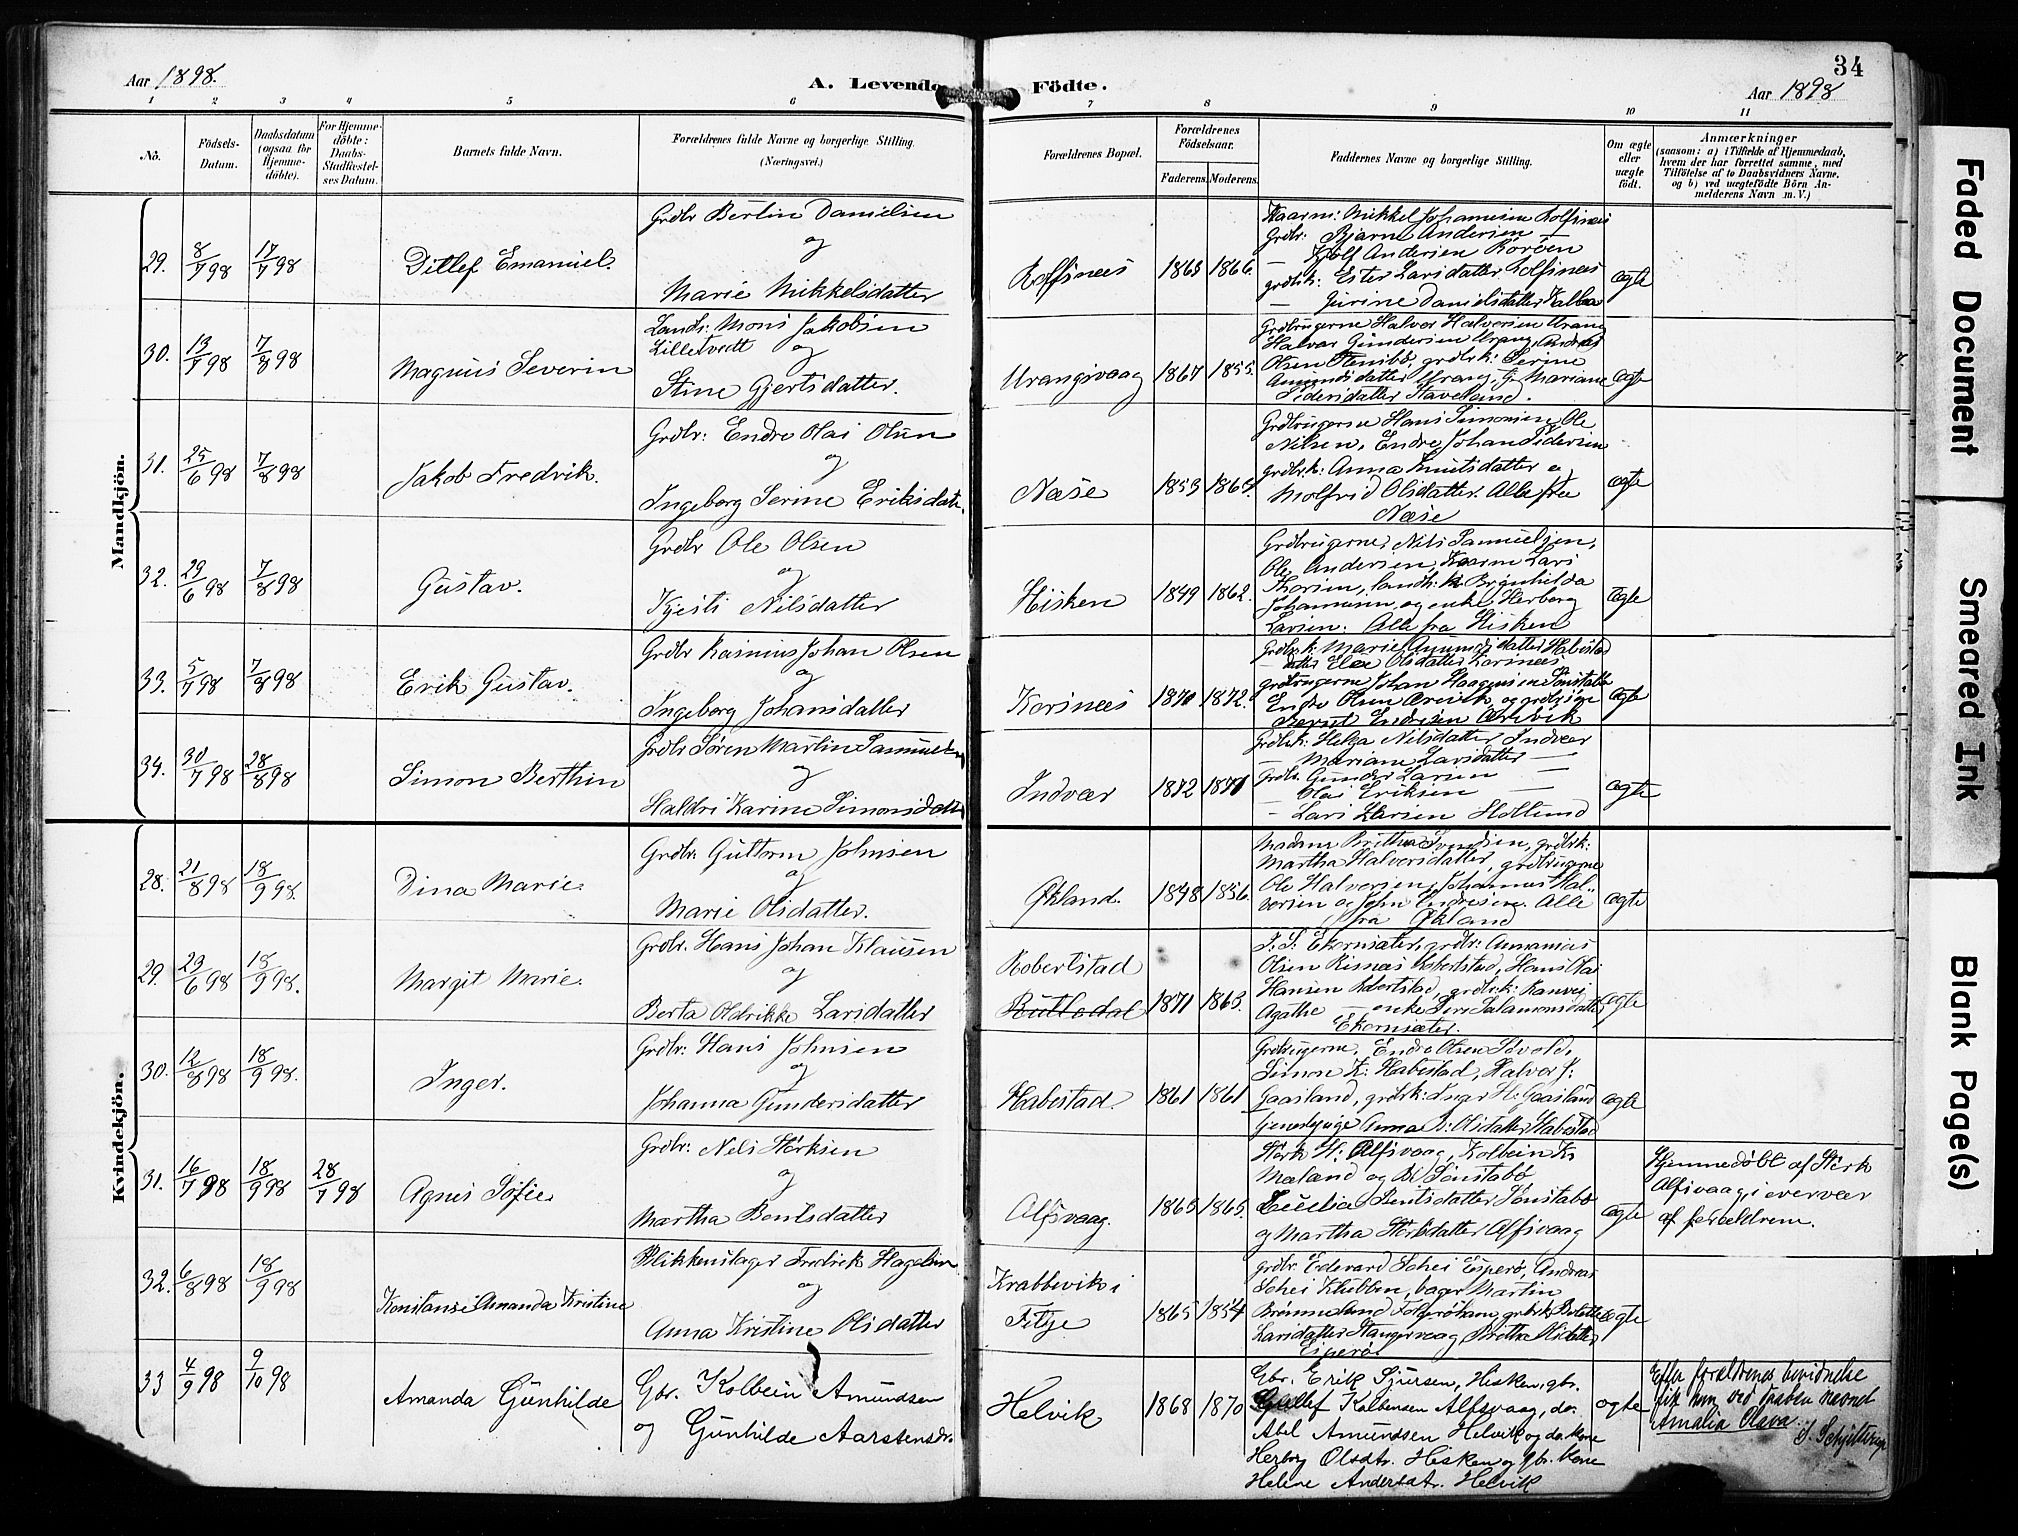 34
Aar 1898.
A. Levende Födte.
Aar 1898
1 2 3 4 5 6 7 8 9 10 11
No.
Födsels-Datum.
Daabsdatum (ogsaa för Hjemme-döbte).
For Hjemme-döbte: Daabs-Stadfæstel-ses Datum.
Barnets fulde Navn.
Forældrenes fulde Navne og borgerlige Stilling. (Næringsvei.)
Forældrenes Bopæl.
Forældrenes Födselsaar.
Faderens. Moderens.
Faddernes Navne og borgerlige Stilling.
Om ægte eller uægte födt.
Anmærkninger
(saasom: a) i Tilfælde af Hjemmedaab,
hvem der har forrettet samme, med
Tilföielse af to Daabsvidners Navne.
og b) ved uægtefödte Börn An-
melderens Navn m. V.)
Mandkjön.
29. 8/7 98 17/7 98 Ditlef Emanuel.
Grdbr Bertin Danielsen
og
Marie Mikkelsdatter
Rolfsnæs 1863 1866.
Grdbr: Bjarne Andersen
Andersen Rorøen
Ester Larsdatter Rolfsnæs
Danielsdatter
ægte
30. 13/7 98 7/8 98 Magnus Severin
Landh: Mons Jakobsen
Lilletvedt og
Stine Gjertsdatter.
Urangsvaag 1867 1855.
Grdbrugerne Halvor Halvorsen Urang
Halvar Gundersen Urang, Andreas
Olsen Stensbø, grdbrk: Serine
Amundsdatter Urang, Mariane
Pedersdatter Staveland.
ægte
31. 25/6 98 7/8 98 Jakob Fredrik.
Grdbr: Endre Olai Olsen
og
Ingeborg Serine Eriksdatr.
Næse 1853 1865.
Grdbrugerne Hans Simonsen, Ole
Nilsen, Endre Johan Pedersen
grdbrk: Anna Knutsdatter og
Molfrid Olsdatter. Alle fra
Næse
ægte
32. 29/6 98 7/8 98 Gustav.
Grdbr Ole Olsen
og
Kjersti Nilsdatter
Hisken 1849 1862.
Grdbrugerne, Nils Samuelsen,
Ole Andersen, Lars
landh: k. Brynhilda
Johannesen, og enke Herborg
Larsen: Alle fra Hisken
ægte
33. 5/7 98 7/8 98 Erik Gustav.
Grdbr Rasmus Johan Olsen
og
Ingeborg Johansdatter
Korsnæs 1870 1872.
Grdbrk. Marie Amundsdatter Habestad
Olsdatter Korsnæs,
grdbrugerne Johan Haagensen Sønstabø
Endre Olsen Ærevik, og
Endresen Ærevik
ægte
34. 30/7 98 28/8 98 Simon Berthin
Grdbr Søren Martin Samuelsen
og
Haldri Karine Simonsdatter
Indvær 1872 1871
Grdbrk: Helga Nilsdatter Indvær
Mariane Larsdatter
grdbr. Gunder Larsen
Olai Eriksen
Lars Larsen Hollund
ægte
Kvindekjön.
28. 21/8 98 18/9 98. Dina Marie.
Grdbr: Guttorm Johnsen
og
Marie Olsdatter.
Økland. 1848 1856.
Madam Britha, grdbrk:
Martha Halvorsdatter, grdbrugerne
Ole Halvorsen, Johannes Hal-
vorsen og John Endresen. Alle
fra Økland
ægte
29. 23/6 98 18/9 98. Margit Marie.
Grdbr. Hans Johan Klausen
og
Berta Oldrikke Larsdatter
Robertstad 1871 1863.
Ekornsæter, grdbr: Annanias
Olsen Risnæs Robertstad, Hans Olai
Hansen Robertstad, grdbrk: Ranvei
Agathe enke Siri Salamonsdatter
Ekornsæter.
ægte
30. 12/8 98 18/9 98. Inger.
Grdbr: Hans Johnsen
og
Johanna Gundersdatter
Habestad. 1861 1861
Grdbrugerne, Endre Olsen
Simon K: Habestad, Halvor J:
Gaasland, grdbrk: Inger H: Gaasland
pige Anna B: Olsdatter Habestad
ægte
31. 16/7 98 18/9 98 28/7 98 Agnes Sofie.
Grdbr: Nils Størksen
og
Martha Bentsdatter
Alfsvaag. 1863 1865.
Størk H: Alfsvaag, Kolbein K:
Mæland og B: Sønstabø
Cecilia Bentsdatter Sønstabø
og Martha Størksdatter Alfsvaag
ægte
Hjemmedøbt af Størk
Alfsvaag, i overvær
af forældrene.
32. 6/8 98 18/9 98 Konstanse Amanda Kristine
Blikkenslager Fredrik Hagelin
og
Anna Kristine Olsdatter
Krabbevik i
Fitje 1865 1854
grdbr. Edevard Schei Esperø, Andreas
Schei Klubben, bager Martin
Brønnelund, grdbrk
Larsdatter Stangervaag
Esperø
ægte
33 4/9 98 9/10 98 Amanda Gunhilde
Gbr. Kolbein Amundsen
og Gunhilde Aarstensdr.
Helvik 1868 1870
Gbr. Erik Sjursen, Hisken, gbr.
Kolbensen Alfsvaag, do.
Abel Amundsen Helvik og do. kone
Herborg Olsdtr. Hisken og gbr. kone
Helene Andersdtr. Helvik
ægte
Efter forældrenes bevidnelse
fik hun ved daaben navnet
Amalia Olava.
J. Schjelderup
Faded Document
Smeared Ink
Blank Page(s)